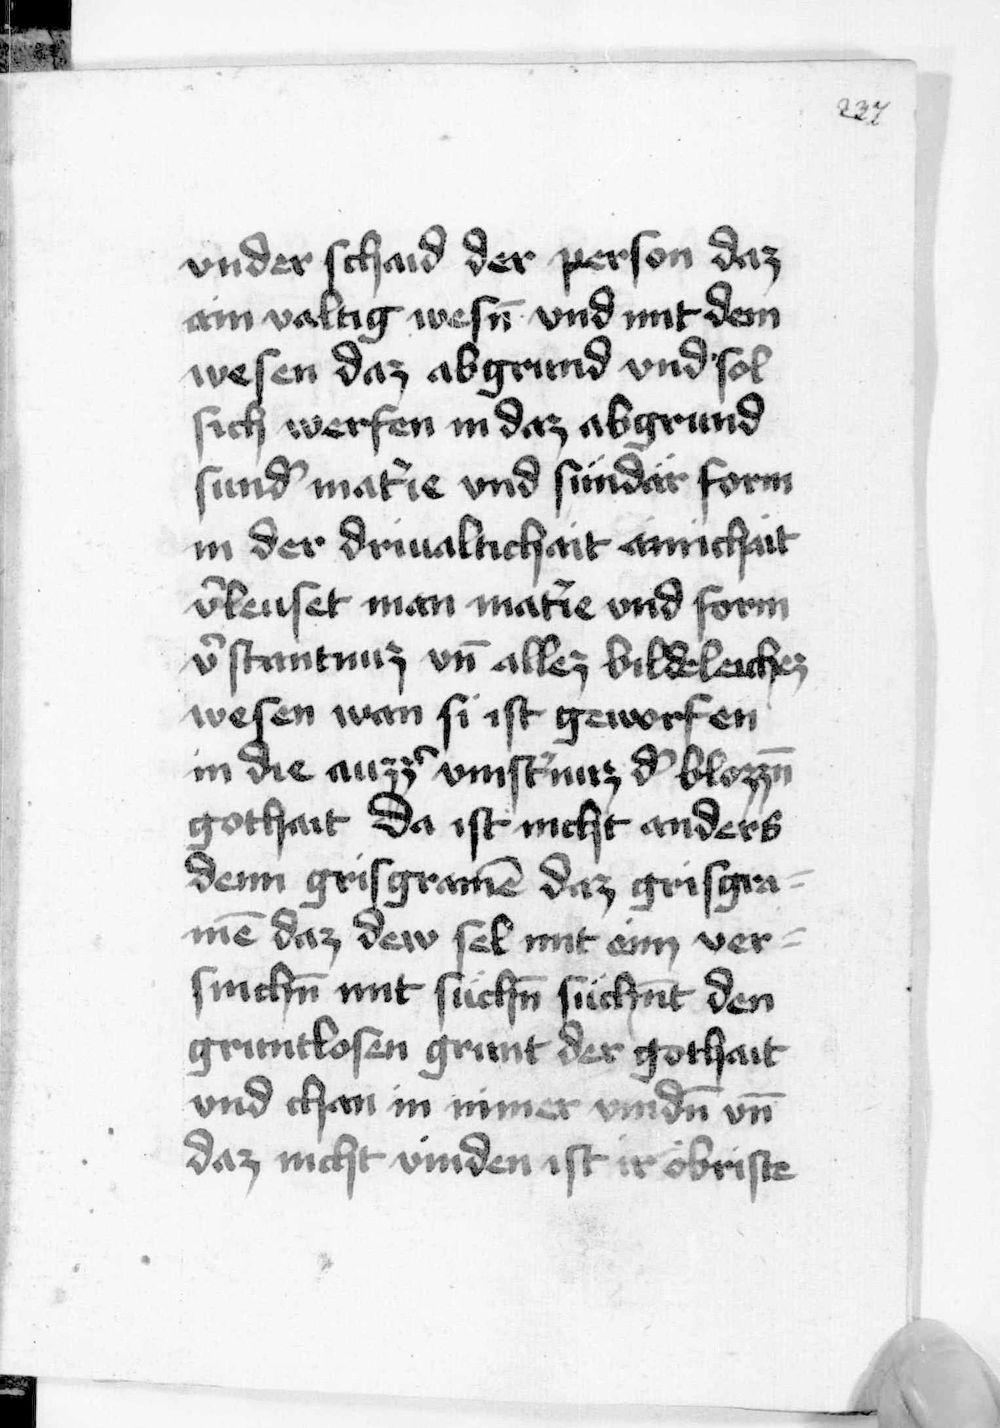 237
vnder schaid der person daz
ain valtig wesn̄ vnd mit dem
wesen daz abgrund vnd sol
sich werfen in daz abgrund
sund᾽ mat᾽ie vnd sündär form
in der driualtichait ainichait
v᾽leuset man mat᾽ie vnd form
v᾽stantnuz vn̄ allez bildeleichez
wesen wan si ist geworfen
in die auzz᾽ vinst᾽nuz d᾽ blozzn̄
gothait Da ist nicht anders
denn grisgramē daz grisgra=
mē daz dew sel mit eim ver=
suichn̄ mit süchn̄ süchn̄t den
gruntlosen grunt der gothait
vnd chan in nimer vindn̄ vn̄
daz nicht vinden ist ir öbriste